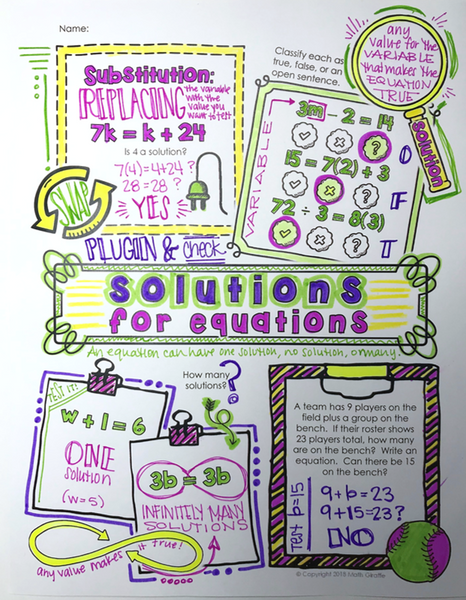 Name:
Substitution:
REPLACING
the variable
with the
value you
want to test
7k = k + 24
Is 4 a solution?
7(4)=4+24 ?
28 = 28 ?
YES
SWAP
PLUG IN & check
Classify each as
true, false, or an
open sentence.
VARIABLE
3m - 2 = 14
? O
15 = 7(2) + 3
? F
72 ÷ 3 = 8(3)
? T
any
value for the
VARIABLE
that makes the
EQUATION
TRUE
solution
solutions
for equations
An equation can have one solution, no solution, or many!
TEST IT!
w + 1 = 6
ONE
solution
(w=5)
How many
solutions?
?
3b = 3b
INFINITELY MANY
SOLUTIONS
any value makes it true!
A team has 9 players on the
field plus a group on the
bench. If their roster shows
23 players total, how many
are on the bench? Write an
equation. Can there be 15
on the bench?
TEST b=15
9+b=23
9+15=23?
NO
© Copyright 2018 Math Giraffe